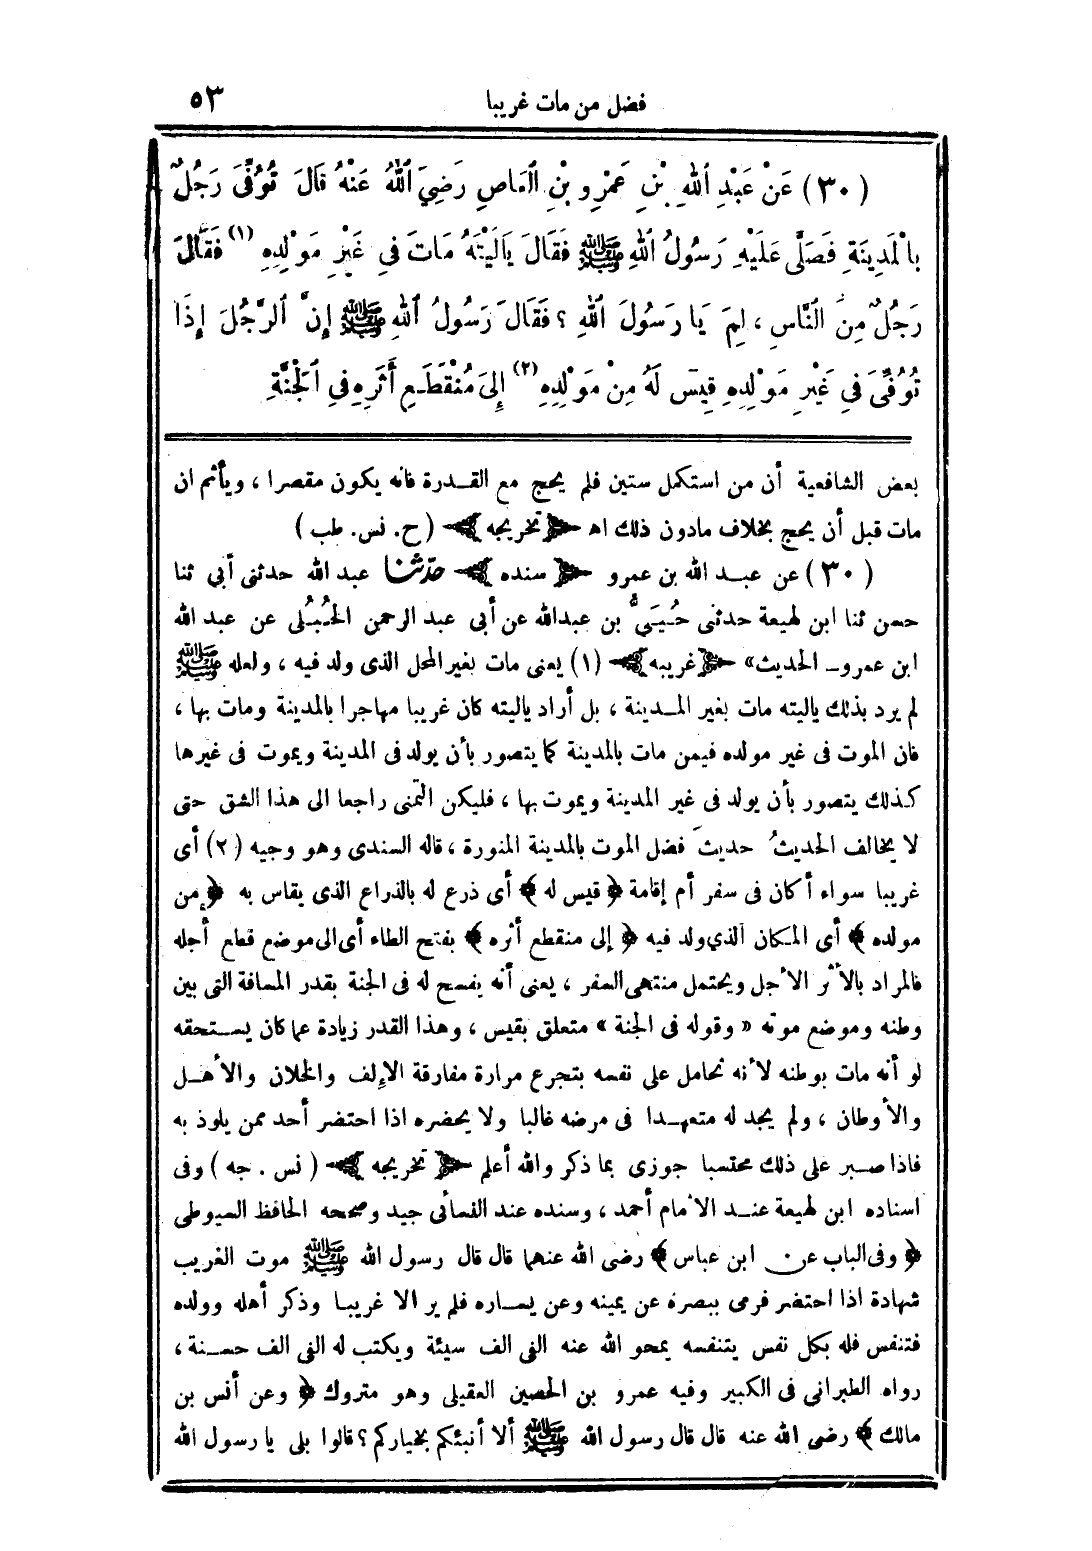 فضل من مات غريبا ٥٣
(٣٠) عَنْ عَبْدِ اللهِ بْنِ عَمْرِو بْنِ الْعَاصِ رَضِيَ اللهُ عَنْهُ قَالَ تُوُفِّىَ رَجُلٌ
بِالْمَدِينَةِ فَصَلَّى عَلَيْهِ رَسُولُ اللهِ ﷺ فَقَالَ يَالَيْتَهُ مَاتَ فِي غَيْرِ مَوْلِدِهِ (١) فَقَالَ
رَجُلٌ مِنَ النَّاسِ ، لِمَ يَا رَسُولَ اللهِ ؟ فَقَالَ رَسُولُ اللهِ ﷺ إِنَّ الرَّجُلَ إِذَا
تُوُفِّىَ فِي غَيْرِ مَوْلِدِهِ قِيسَ لَهُ مِنْ مَوْلِدِهِ (٢) إِلَى مُنْقَطَعِ أَثَرِهِ فِي الْجَنَّةِ
بعض الشافعية أن من استكمل ستين فلم يحج مع القدرة فانه يكون مقصرا ، ويأثم ان
مات قبل أن يحج بخلاف مادون ذلك اه ﴿ تخريجه ﴾ (ح. نس. طب)
(٣٠) عن عبد الله بن عمرو ﴿ سنده ﴾ حدّثنا عبد الله حدثنى أبي ثنا
حسن ثنا ابن لهيعة حدثنى حُيَيُّ بن عبدالله عن أبى عبد الرحمن الحُبُلى عن عبد الله
ابن عمرو ـ الحديث» ﴿ غريبه ﴾ (١) يعنى مات بغير المحل الذى ولد فيه ، ولعله ﷺ
لم يرد بذلك ياليته مات بغير المدينة ، بل أراد ياليته كان غريبا مهاجرا بالمدينة ومات بها ،
فان الموت فى غير مولده فيمن مات بالمدينة كما يتصور بأن يولد فى المدينة ويموت فى غيرها
كذلك يتصور بأن يولد فى غير المدينة ويموت بها ، فليكن التمنى راجعا الى هذا الشق حتى
لا يخالف الحديثُ حديثَ فضل الموت بالمدينة المنورة ، قاله السندى وهو وجيه (٢) أى
غريبا سواء أكان فى سفر أم إقامة ﴿ قيس له ﴾ أى ذرع له بالذراع الذى يقاس به ﴿ من
مولده ﴾ أى المكان الذى ولد فيه ﴿ إلى منقطع أثره ﴾ بفتح الطاء أى الى موضع قطع أجله
فالمراد بالأثر الأجل ويحتمل منتهى السفر ، يعنى أنه يفسح له فى الجنة بقدر المسافة التى بين
وطنه وموضع موته « وقوله فى الجنة » متعلق بقيس ، وهذا القدر زيادة عما كان يستحقه
لو أنه مات بوطنه لأنه تحامل على نفسه بتجرع مرارة مفارقة الإلف والخلان والأهل
والأوطان ، ولم يجد له متعهدا فى مرضه غالبا ولا يحضره اذا احتضر أحد ممن يلوذ به
فاذا صبر على ذلك محتسبا جوزى بما ذكر والله أعلم ﴿ تخريجه ﴾ (نس . جه) وفى
اسناده ابن لهيعة عند الامام أحمد ، وسنده عند النسائى جيد وصححه الحافظ السيوطى
﴿ وفى الباب عن ابن عباس ﴾ رضى الله عنهما قال قال رسول الله ﷺ موت الغريب
شهادة اذا احتضر فرمى ببصره عن يمينه وعن يساره فلم ير الا غريبا وذكر أهله وولده
فتنفس فله بكل نفس يتنفسه يمحو الله عنه الفى الف سيئة ويكتب له الفى الف حسنة ،
رواه الطبراني فى الكبير وفيه عمرو بن الحصين العقيلى وهو متروك ﴿ وعن أنس بن
مالك ﴾ رضى الله عنه قال قال رسول الله ﷺ ألا أنبئكم بخياركم ؟ قالوا بلى يا رسول الله